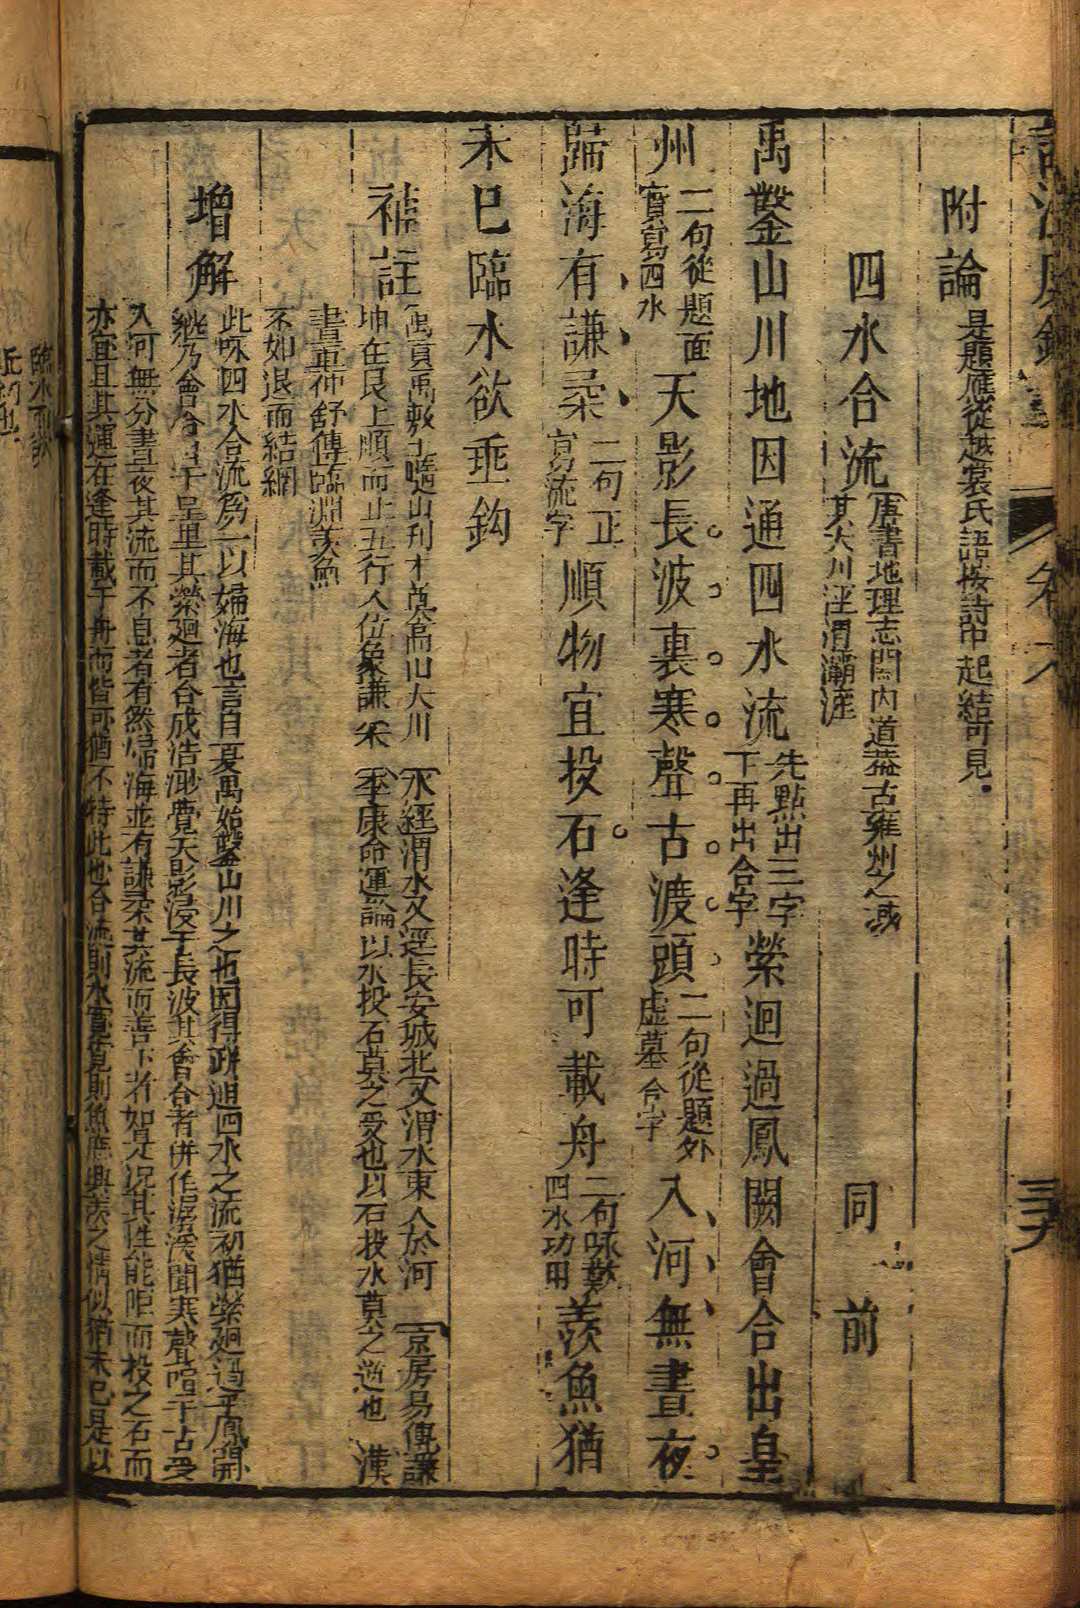 附論 是題應從越裳氏語按詩中起結可見
四水合流 唐書地理志關內道蓋古雍州之域 其大川涇渭灞滻 同前
禹鑿山川地因通四水流 先點出三字 下再出合字 縈迴過鳳闕會合出皇
州 二句從題面 實寫四水 天影長波裏寒聲古渡頭 二句從題外 虛摹合字 入河無晝夜
歸海有謙柔 二句正 寫流字 順物宜投石逢時可載舟 二句咏歎 四水功用 羨魚猶
未已臨水欲垂鈎
補註 禹貢禹敷土隨山刊木奠高山大川 水經渭水又逕長安城北又渭水東入於河 京房易傳謙
坤在艮上順而止五行人位象謙柔 李康命運論以水投石莫之受也以石投水莫之逆也 漢
書董仲舒傳臨淵羨魚
不如退而結網
增解 此咏四水合流爲一以歸海也言自夏禹始鑿山川之地因得疏通四水之流初猶縈迴過乎鳳闕
繼乃會合出乎皇里其縈迴者合成浩渺覺天影浸于長波其會合者併作潺湲聞寒聲喧于古受
入河無分晝夜其流而不息者有然歸海並有謙柔其流而善下者如是況其性能順而投之石而
亦宜且其運在逢時載乎舟而皆可猶不特此也合流則水寬寬則魚應興羨之情似猶未已是以
臨水而欲